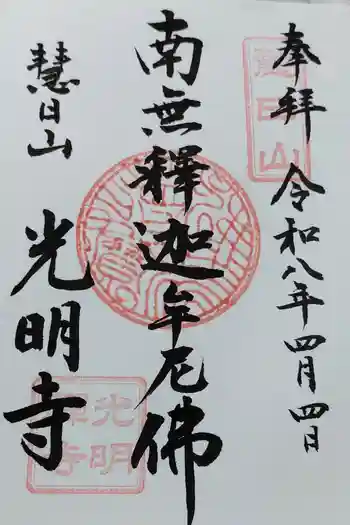 奉拝 令和八年四月四日
南無釋迦牟尼佛
慧日山
光明寺
慧日山
光明禅寺